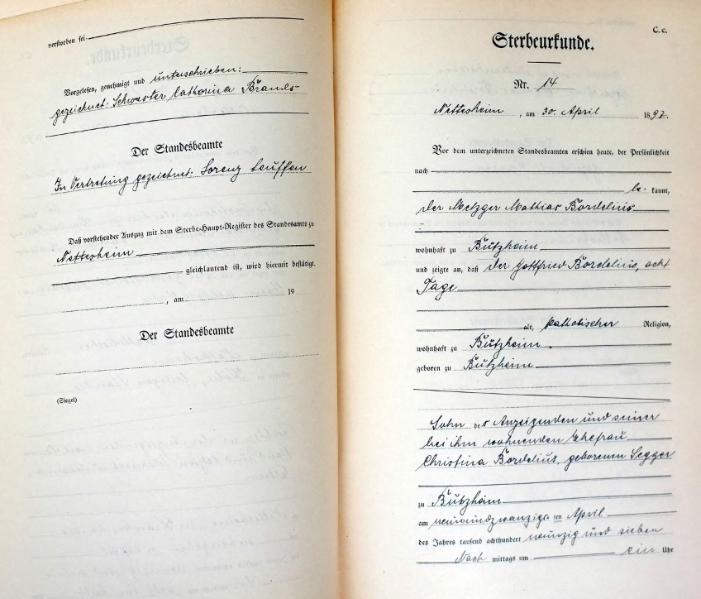 verstorben sei
Vorgelesen, genehmigt und unterschrieben:
gezeichnet: Schwester Catharina Brands
Der Standesbeamte
In Vertretung gezeichnet: Lorenz Lauffen
Daß vorstehender Auszug mit dem Sterbe-Haupt-Register des Standesamts zu
Nettersheim
gleichlautend ist, wird hiermit bestätigt.
, am 19
Der Standesbeamte
(Siegel)
C. c.
Sterbeurkunde.
Nr. 14
Nettersheim, am 30. April 1897.
Vor dem unterzeichneten Standesbeamten erschien heute, der Persönlichkeit
nach
be- kannt,
der Metzger Mathias Bordelius
wohnhaft zu Butzheim
und zeigte an, daß der Gottfried Bordelius, acht
Tage
alt, katholischer Religion,
wohnhaft zu Butzheim.
geboren zu Butzheim
Sohn des Anzeigenden und seiner
bei ihm wohnenden Ehefrau
Christina Bordelius, geborenen Segger
zu Butzheim
am neunundzwanzig ten April
des Jahres tausend achthundert neunzig und sieben
Nach mittags um ein Uhr